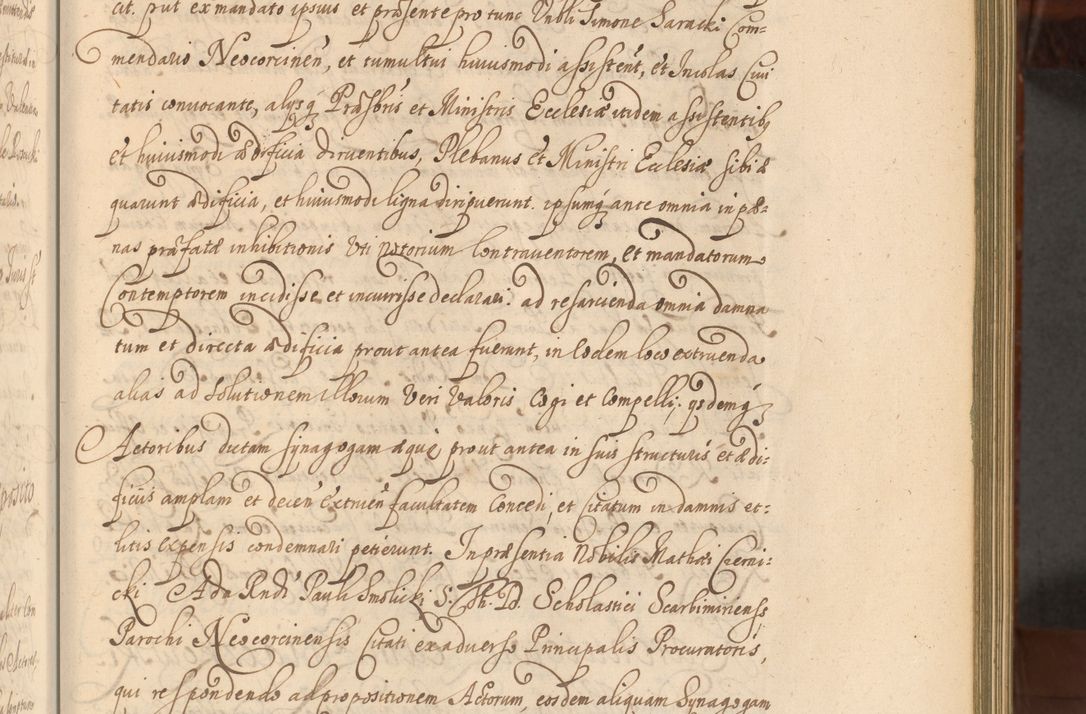 cit. prut ex mandato ipsius et præsente pro tunc Vnbli Simone Saracki Com=
mendario Neocorcinen, et tumultui huiusmodi assisten't, et Incolas Civi
tatis convocante, alysq Præsbris et Ministris Ecclesiæ itidem assistentib9
et huiusmodi ædificia diruentibus, Plebanus et Ministri Ecclesiæ sibi æ
quarunt ædificia, et huiusmodi ligna diripuerunt. ipsumq ante omnia in pæ=
nas præfatæ inhibitionis uti notorium Contraventorem, et mandatorum
Contemptorem incidisse et incurrisse declarari: ad resarcienda omnia damna
tum et directa ædificia prout antea fuerunt, in Eodem loco extruenda
alias ad solutionem illorum Veri Valoris Cogi et Compelli; ysdemq
Actoribus dictam Synagogam æque prout antea in suis structuris et ædi:
ficiis amplam et decen' Extruen' facultatem Concedi, et Citatum in damnis et=
litis expensis condemnari petierunt. In præsentia Nobilis Mathæi Czerni:
cki Adn Rndi Pauli Smolicki S. Th. D. Scholastici Scarbimiriensis
Parochi Neocorcinensis Citati ex adverso Principalis Procuratoris,
qui respondendo ad propositionem Actorum, eosdem aliquam Synagogam